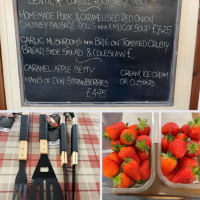 HOMEMADE PORK & CARAMELISED RED ONION
CHUTNEY SAUSAGE ROLLS WITH A MUG OF SOUP £7.25
GARLIC MUSHROOMS WITH BRIE ON TOASTED CRUSTY
BREAD, SIDE SALAD & COLESLAW £
CARAMEL APPLE BETTY
CREAM, ICE CREAM
MAINS OF DON STRAWBERRIES
OR CUSTARD
£4.95